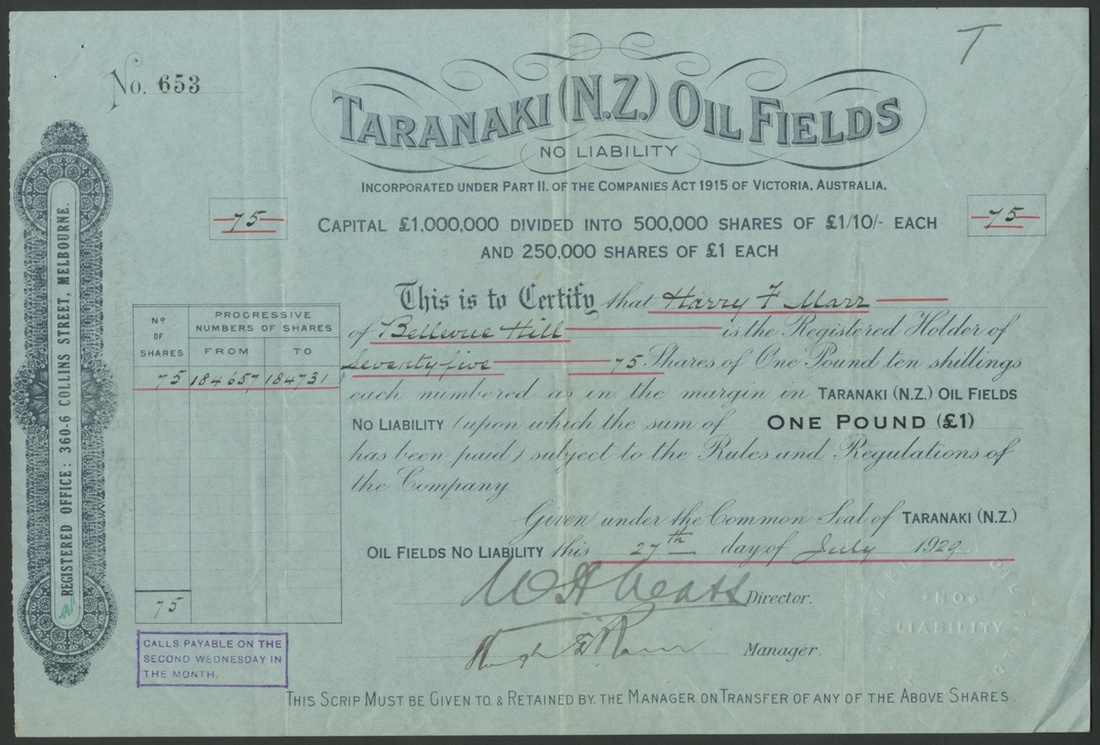 T
No. 653
TARANAKI (N.Z.) OIL FIELDS
NO LIABILITY
INCORPORATED UNDER PART II. OF THE COMPANIES ACT 1915 OF VICTORIA, AUSTRALIA.
75
75
CAPITAL £1,000,000 DIVIDED INTO 500,000 SHARES OF £1/10/- EACH
AND 250,000 SHARES OF £1 EACH
This is to Certify that Harry F Marr
of Bellevue Hill is the Registered Holder of
Seventy five 75 Shares of One Pound ten shillings
each numbered as in the margin in TARANAKI (N.Z.) OIL FIELDS
NO LIABILITY (upon which the sum of ONE POUND (£1)
has been paid) subject to the Rules and Regulations of
the Company
Given under the Common Seal of TARANAKI (N.Z.)
OIL FIELDS NO LIABILITY this 27th day of July 1929
Director.
Manager.
No OF SHARES
PROGRESSIVE NUMBERS OF SHARES
FROM TO
75 184657 184731
75
REGISTERED OFFICE: 360-6 COLLINS STREET, MELBOURNE.
CALLS PAYABLE ON THE
SECOND WEDNESDAY IN
THE MONTH.
NO
LIABILITY
THIS SCRIP MUST BE GIVEN TO & RETAINED BY THE MANAGER ON TRANSFER OF ANY OF THE ABOVE SHARES.